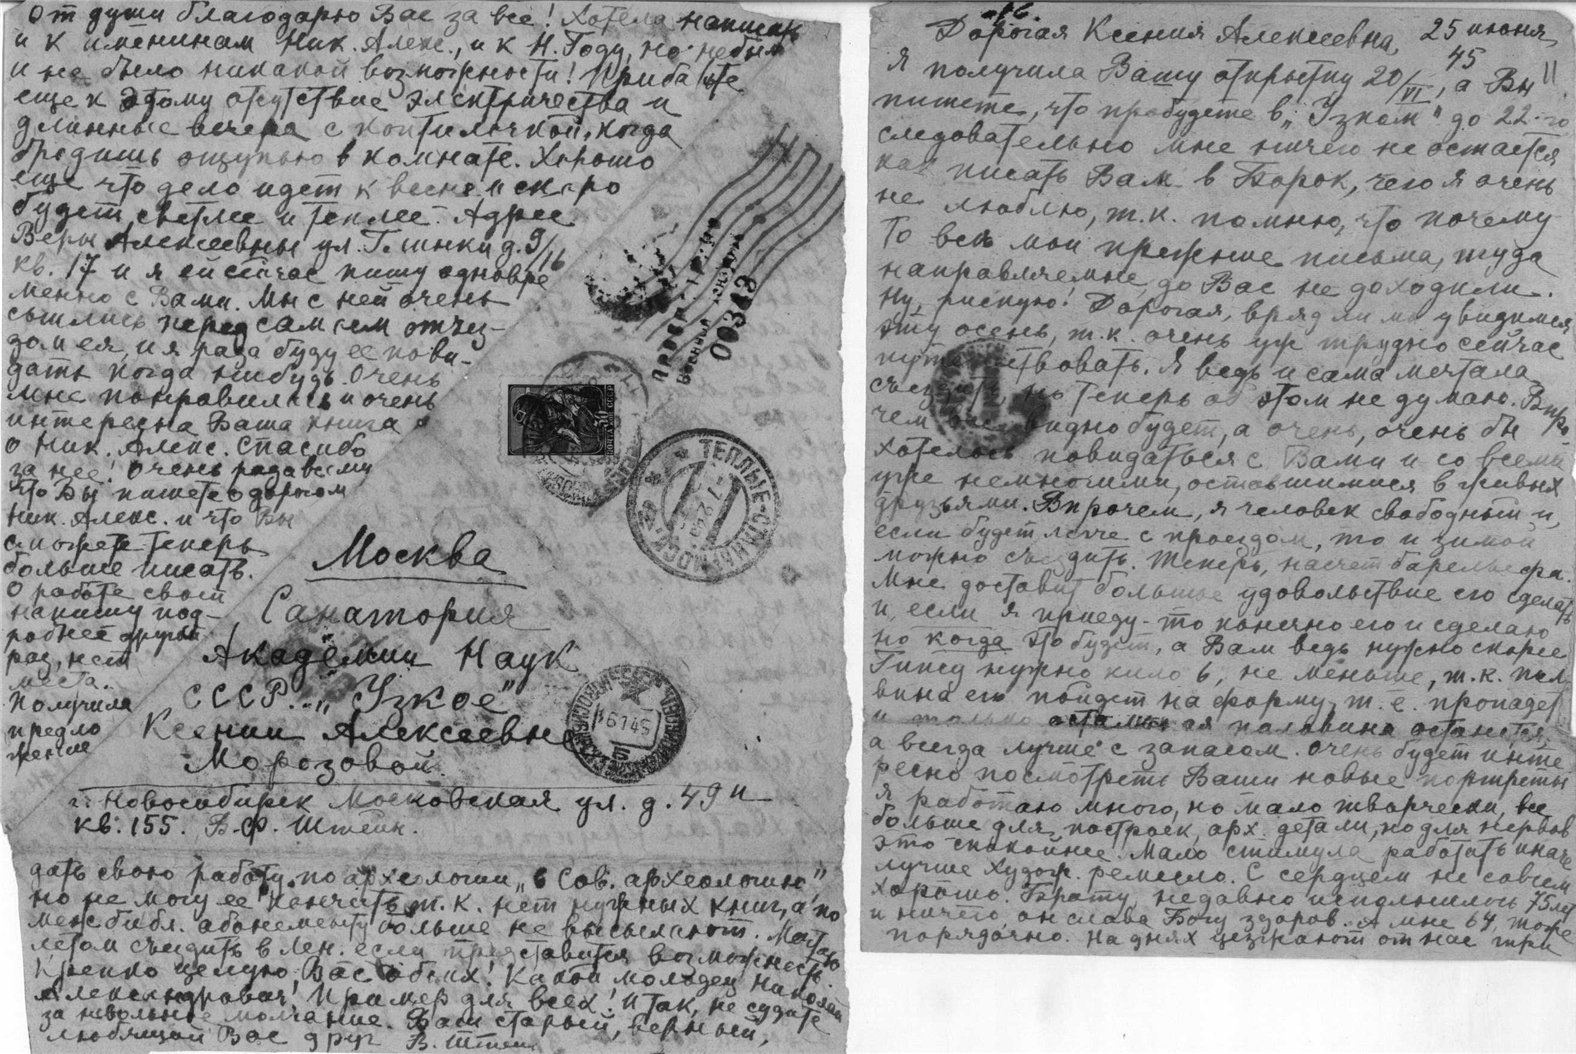 От души благодарю Вас за все! Хотела написать
и к именинам Ник. Алекс., и к Н. Году, но не был
и не было никакой возможности! Прибавьте
еще к этому отсутствие электричества и
длинные вечера с коптилочкой, когда
бродишь ощупью в комнате. Хорошо
еще что дело идет к весне и скоро
будет светлее и теплее. Адрес
Веры Алексеевны ул. Глинки д. 9/16
кв. 17 и я ей сейчас пишу одновре
менно с Вами. Мы с ней очень
сошлись перед самым отъез-
дом ея, и я рада буду ее пови-
дать когда нибудь. Очень
мне понравилась и очень
интересна Ваша книга
о Ник. Алекс. Спасибо
за нее! Очень рада всему
что Вы пишете о дорогом
Ник. Алекс. и что Вы
сможете теперь
больше писать.
О работе своей
напишу под-
робнее другой
раз, нет
места.
Получила
предло
жение
Москва
Санатория
Академии Наук
СССР. „Узкое"
Ксении Алексеевне
Морозовой.
г. Новосибирск Московская ул. д. 49 и
кв. 155. В. Ф. Штейн.
Просмотрено
Военной Цензурой
00343
30
ПОЧТА СССР
ТЕПЛЫЙ-СТАН
МОСК.
6 1 45
дать свою работу по археологии „в Сов. археологию"
но не могу ее кончить, т. к. нет нужных книг, а по
меж библ. абонементу больше не высылают. Мечтаю
летом съездить в Лен. если представится возможность.
Крепко целую Вас обоих! Какой молодец Николай
Александрович! Пример для всех! Итак, не судите
за невольное молчание. Ваш старый, верный,
любящий Вас друг В. Штейн
Дорогая Ксения Алексеевна, 25 июня
45
я получила Вашу открытку 20/VI, а Вы
пишете, что пробудете в „Узком" до 22-го
следовательно мне ничего не остается
как писать Вам в Борок, чего я очень
не люблю, т. к. помню, что почему
то все мои прежние письма, туда
направляемые до Вас не доходили.
Ну, рискую! Дорогая, вряд ли мы увидимся
эту осень, т. к. очень уж трудно сейчас
путешествовать. Я ведь и сама мечтала
съездить, но теперь об этом не думаю. Впро
чем видно будет, а очень, очень бы
хотелось повидаться с Вами и со всеми
уже немногими, оставшимися в живых
друзьями. Впрочем, я человек свободный и,
если будет легче с проездом, то и зимой
можно съездить. Теперь, насчет барельефа.
Мне доставит большое удовольствие его сделать
и, если я приеду - то конечно его и сделаю
но когда это будет, а Вам ведь нужно скорее
Гипсу нужно кило 6, не меньше, т. к. пол-
вина его пойдет на форму, т. е. пропадет
и только остальная половина останется,
а всегда лучше с запасом. Очень будет инте
ресно посмотреть Ваши новые портреты
я работаю много, но мало творчески, все
больше для построек, арх. детали, но для нервов
это спокойнее. Мало стимула работать иначе
лучше худож. ремесло. С сердцем не совсем
хорошо. Брату, недавно исполнилось 75 лет
и ничего, он слава Богу здоров. А мне 64, тоже
порядочно. На днях уезжают от нас три